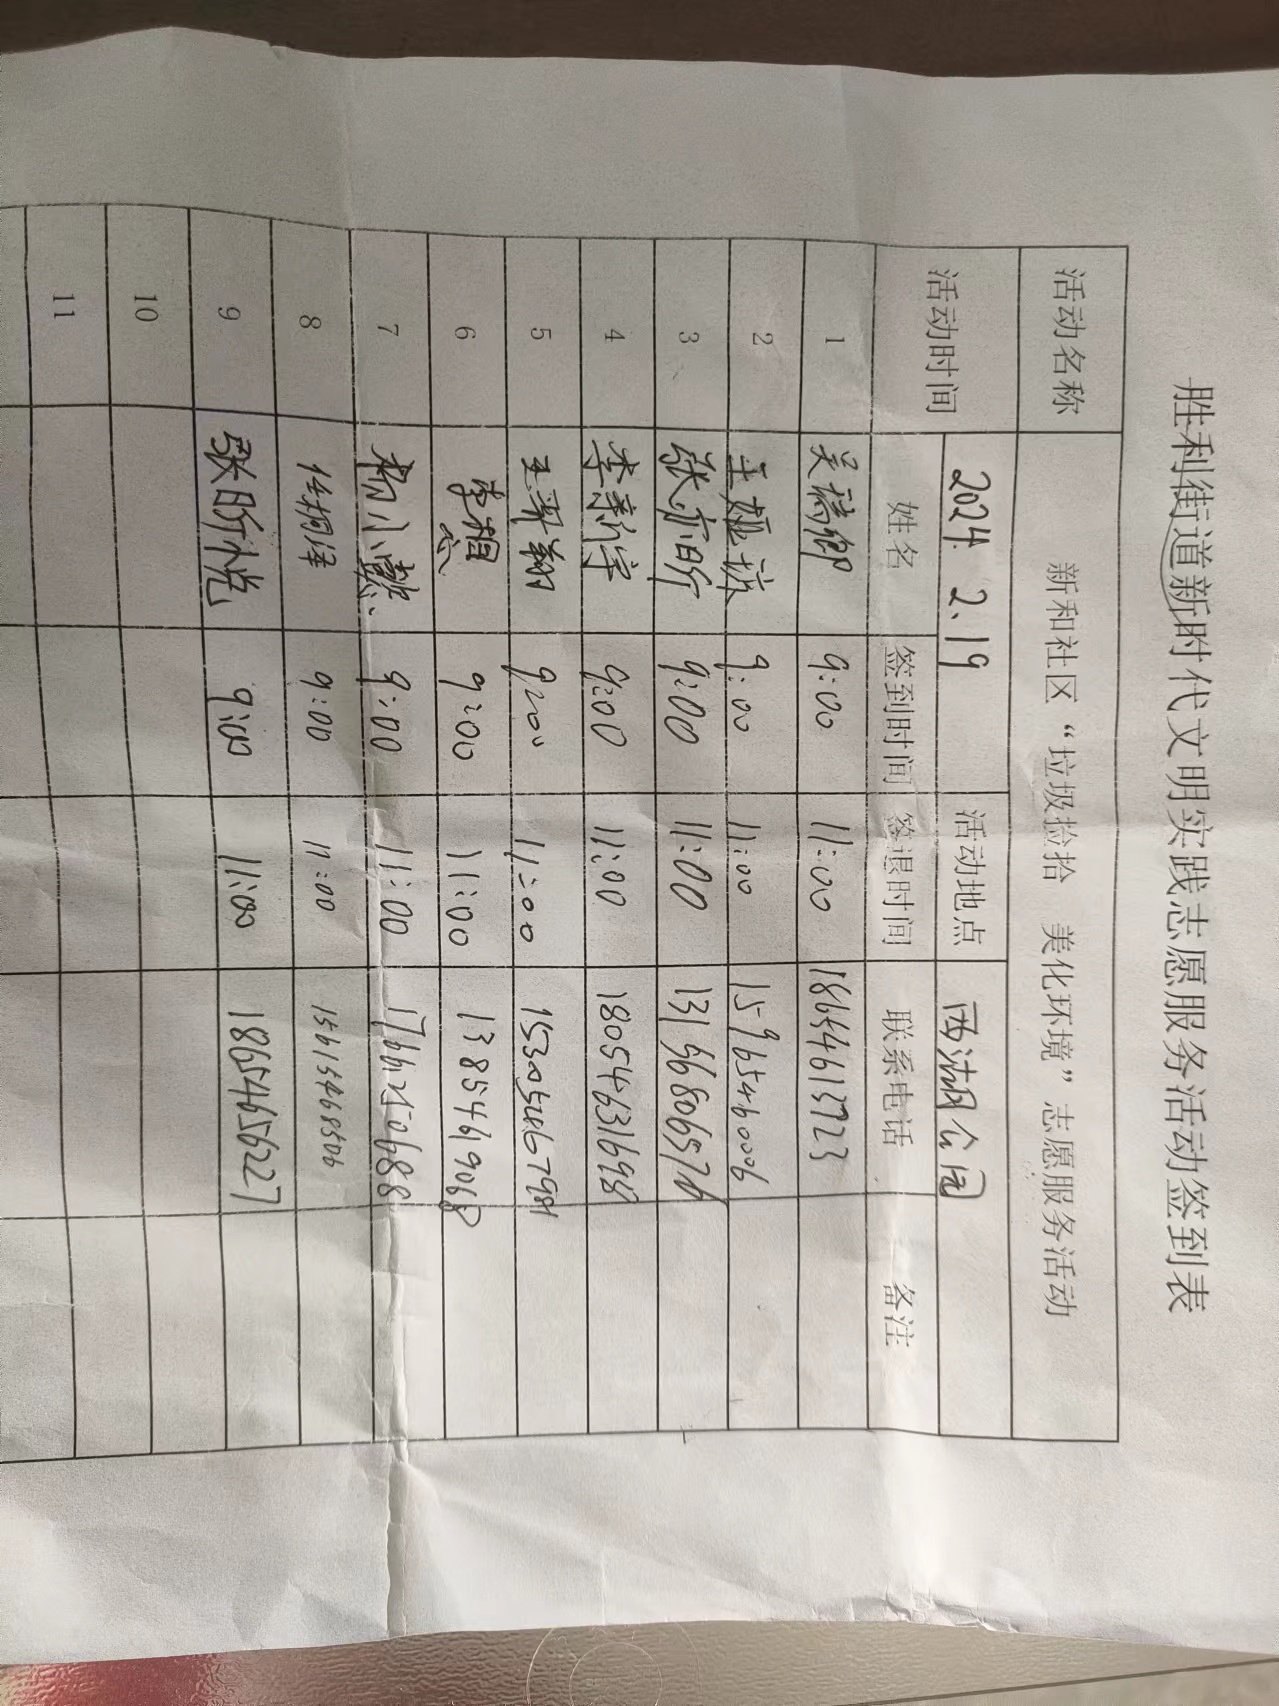 胜利街道新时代文明实践志愿服务活动签到表
活动名称 新和社区“垃圾捡拾 美化环境”志愿服务活动
活动时间 2024.2.19 活动地点 西湖公园
姓名 签到时间 签退时间 联系电话 备注
1 吴瑞卿 9:00 11:00 18654613723
2 王姬琼 9:00 11:00 15965460006
3 张亦昕 9:00 11:00
4 李新宇 9:00 11:00 18054631698
5 王羿翔 9:00 11:00
6 李相 9:00 11:00 13854619068
7 杨小懿 9:00 11:00 17662250688
8 任栩泽 9:00 11:00 15615468506
9 张昕悦 9:00 11:00 18654656227
10
11